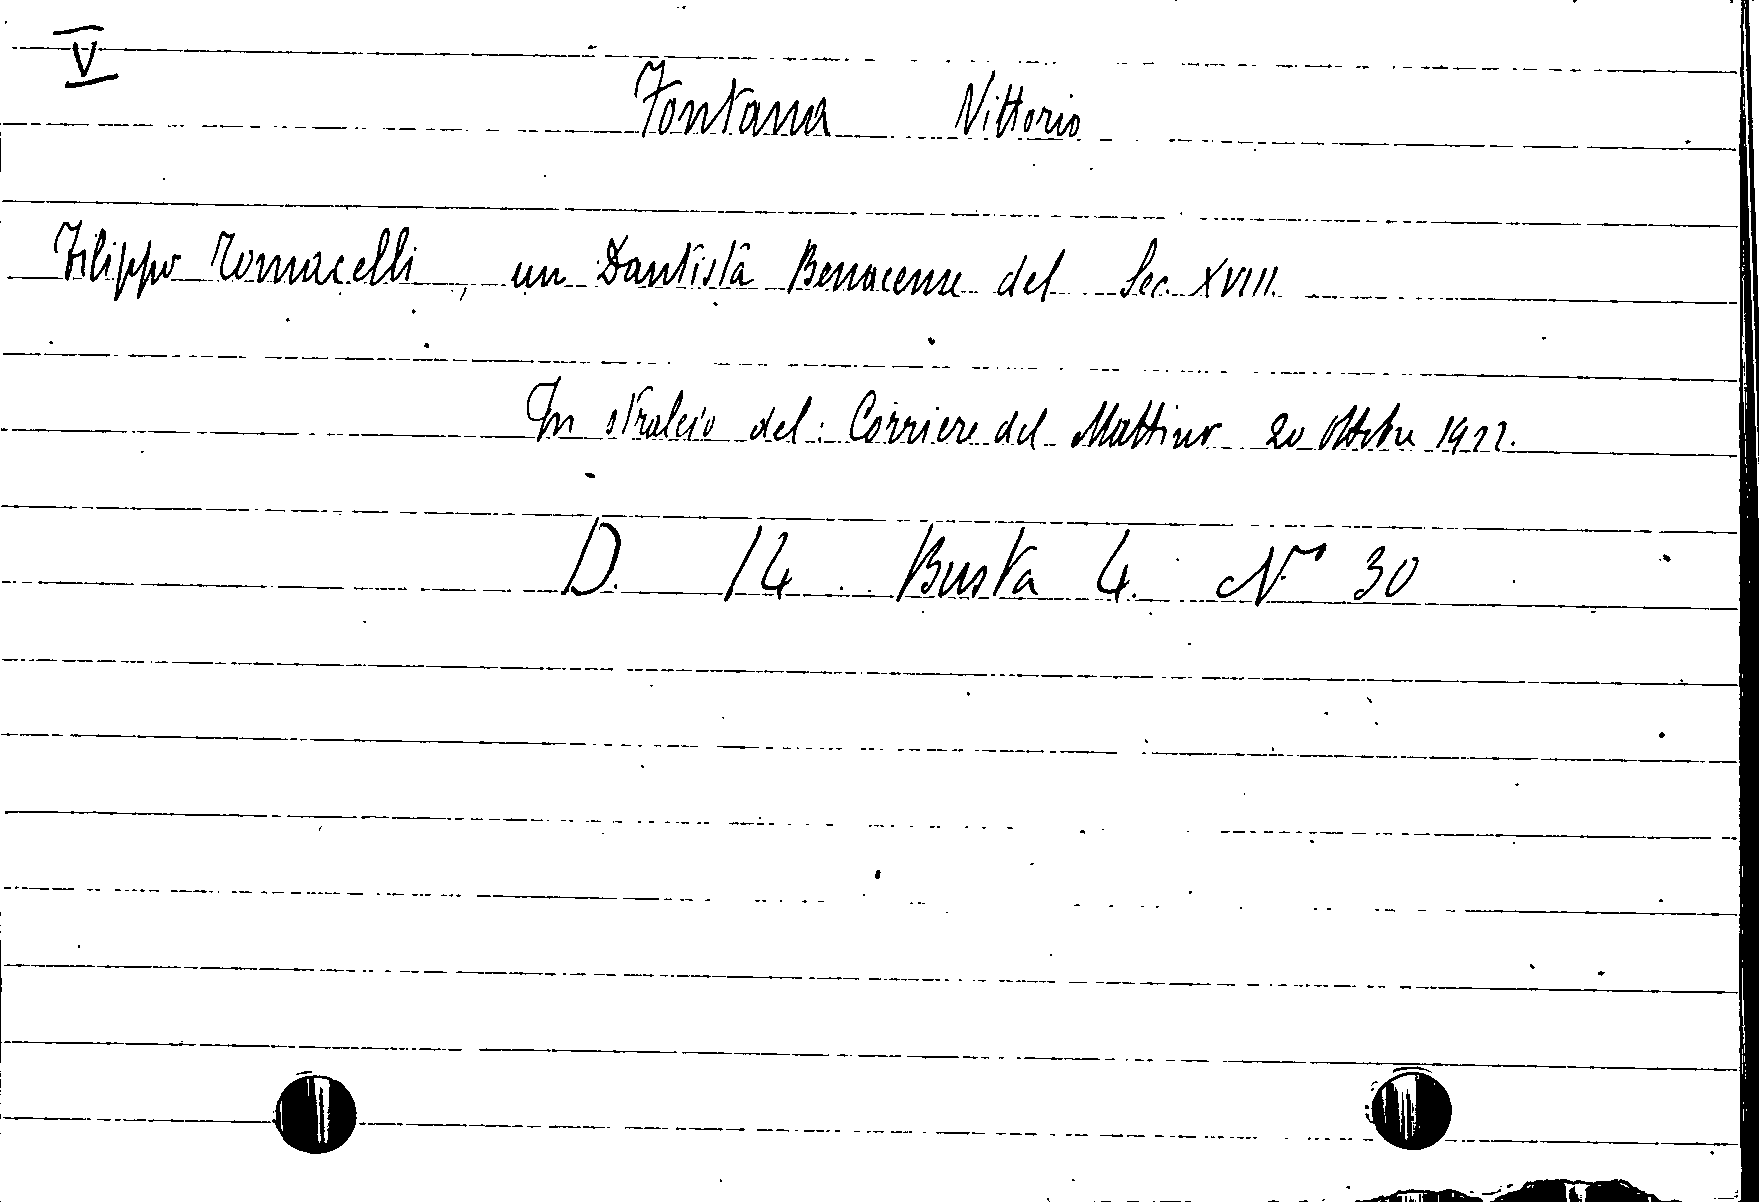 V
Fontana Vittorio
Filippo Tomacelli, un Dantista Benacense del Sec. XVIII.
In stralcio del: Corriere del Mattino 20 Ottobre 1922.
D. 14. Busta 4. N° 30